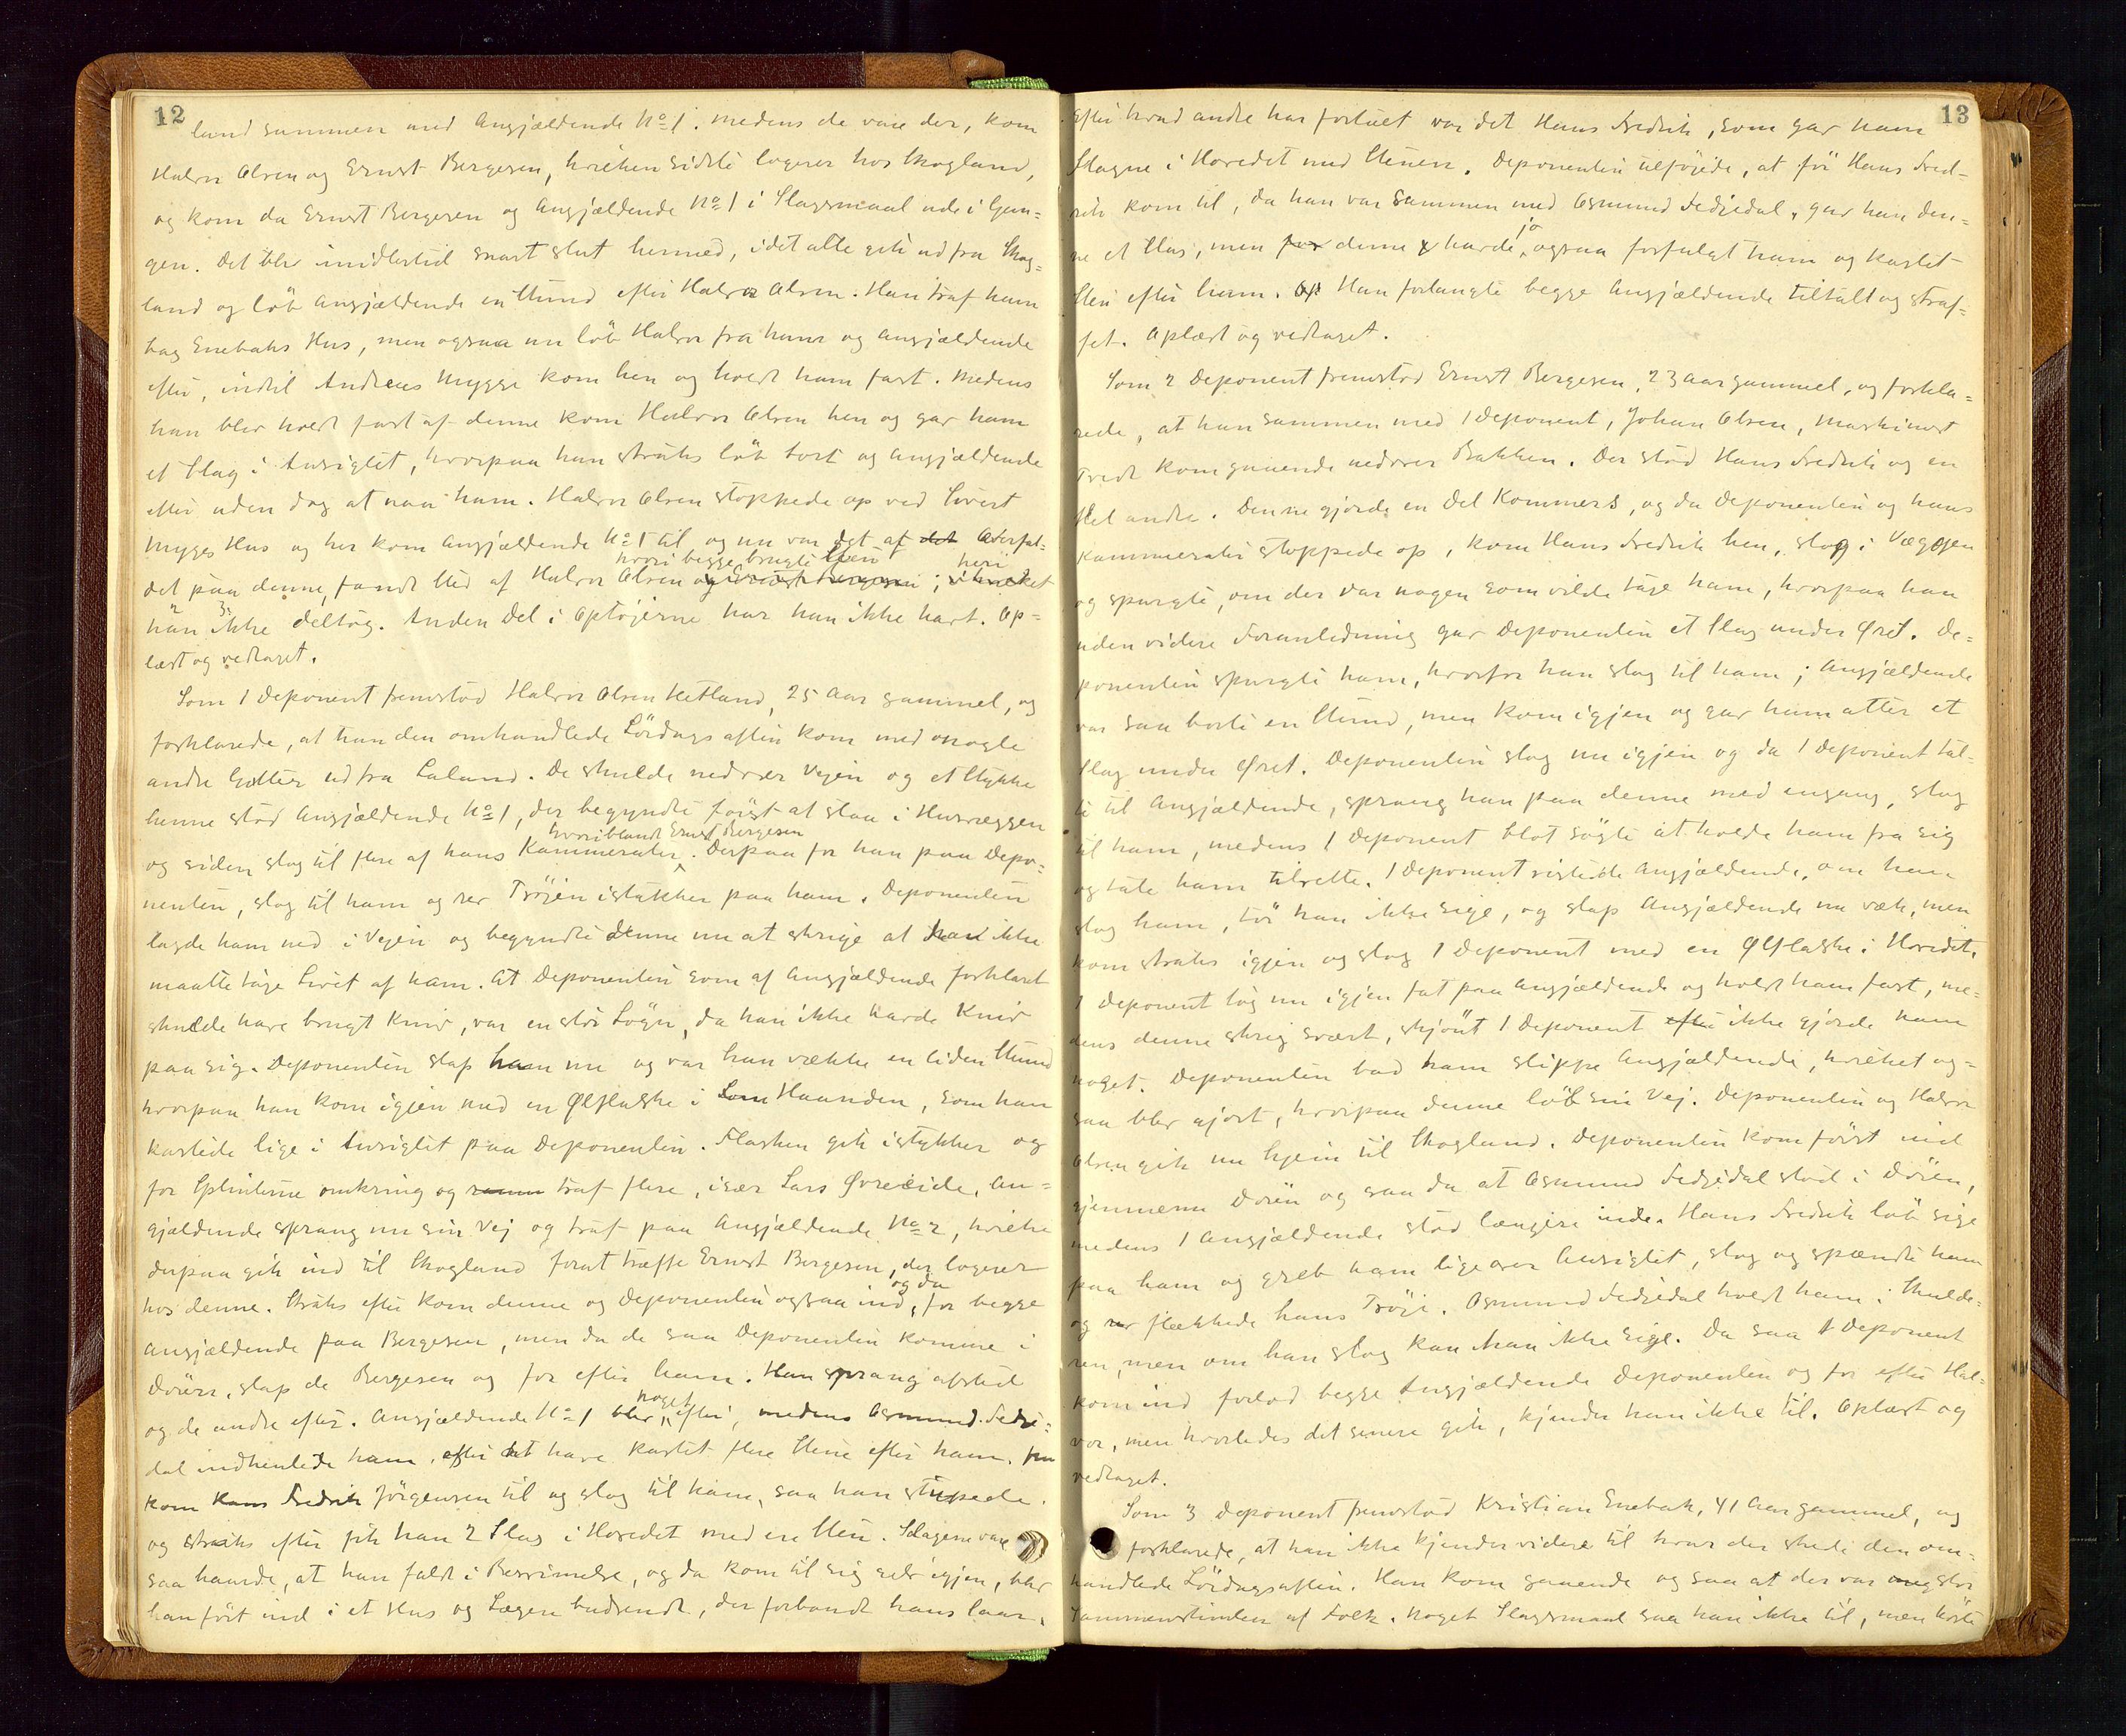 12
land sammen med Angjældende No 1. Medens de vare der, kom
Halvor Olsen og Ernst Bergesen, hvilken sidste logerer hos Skogland,
og kom da Ernst Bergesen og Angjældende No 1 i Slagsmaal ude i Gan-
gen. Det blev imidlertid snart slut hermed, idet alle gik ud fra Skog-
land og löb Angjældende en Stund efter Halvor Olsen. Han traf ham
bag Enebaks Hus, men ogsaa nu löb Halvor fra ham og Angjældende
efter, indtil Andreas Mygge kom hen og holdt ham fast. Medens
han blev holdt fast af denne kom Halvor Olsen hen og gav ham
et Slag i Ansigtet, hvorpaa han straks löb bort og Angjældende
efter uden dog at naa ham. Halvor Olsen stoppede op ved Sivert
Mygges Hus og her kom Angjældende No 1 til og nu var det at det Overfal-
hvori begge brugte Sten heri
det paa denne, fandt Sted af Halvor Olsen og Ernst Bergesen; i hvilket
han ikke deltog. Anden Del i Optöjerne har han ikke havt. Op-
læst og vedtaget.
Som 1 Deponent fremstod Halvor Olsen Ketland, 25 Aar gammel, og
forklarede, at han den omhandlede Lördags aften kom med nogle
andre Gutter ud fra Laland. De skulde nedover Vejen og et Stykke
henne stod Angjældende No 1, der begyndte först at slaa i Husvæggen
hvoriblandt Ernst Bergesen
og siden slog til flere af hans Kammerater. Derpaa for han paa Depo-
nenten, slog til ham og rev Tröjen istykker paa ham. Deponenten
lagde ham ned i Vejen og begyndte denne nu at skrige at han ikke
maatte tage Livet af ham. At Deponenten som af Angjældende forklaret
skulde have brugt Kniv, var en stor Lögn, da han ikke havde Kniv
paa sig. Deponenten slap ham nu og var han vække en liden Stund
hvorpaa han kom igjen med en Ølflaske i Haanden, som han
kastede lige i Ansigtet paa Deponenten. Flasken gik istykker og
for Splinterne omkring og traf flere, især Lars Øvreeide. An-
gjældende sprang nu sin Vej og traf paa Angjældende No 2, hvilke
derpaa gik ind til Skogland forat træffe Ernst Bergesen, der logerer
og da
hos denne. Straks efter kom denne og Deponenten ogsaa ind, for begge
Angjældende paa Bergesen, men da de saa Deponenten komme i
Dören, slap de Bergesen og for efter ham. Han sprang afsted
noget
og de andre efter. Angjældende No 1 blev efter, medens Asmund Fedje-
dal indhentede ham, efter at have kastet flere Stene efter ham.
kom Hans Fredrik Jörgensen til og slog til ham, saa han stupede.
og straks efter fik han 2 Slag i Hovedet med en Sten. Slagene vare
saa haarde, at han faldt i Besvimelse, og da kom til sig selv igjen, blev
han fört ind i et Hus og Lægen budsendt, der forbandt hans Saar.
13
Efter hvad andre har fortalt var det Hans Fredrik, som gav ham
Slagne i Hovedet med Stenen. Deponenten tilföjede, at för Hans Fred-
rik kom til, da han var sammen med Asmund Fedjedal, gav han den-
jo
ne et Slag, men denne havde ogsaa forfulgt ham og kastet
Sten efter ham. Han forlangte begge Angjældende tiltalt og straf-
fet. Oplæst og vedtaget.
Som 2 Deponent fremstod Ernst Bergesen, 23 Aar gammel, og forkla-
rede, at han sammen med 1 Deponent, Johan Olsen, Maskinist
Tvedt kom gaaende nedover Bakken. Der stod Hans Fredrik og en
Del andre. Denne gjorde en Del Kommers, og da Deponenten og hans
Kammerater stoppede op, kom Hans Fredrik hen, slog i Væggen
og spurgte, om der var nogen som vilde tage ham, hvorpaa han
uden videre Foranledning gav Deponenten et Slag under Øret. De-
ponenten spurgte ham, hvorfor han slog til ham; Angjældende
var saa borte en Stund, men kom igjen og gav ham atter et
Slag under Øret. Deponenten slog nu igjen og da 1 Deponent tal-
te til Angjældende, sprang han paa denne med engang, slog
til ham, medens 1 Deponent blot sögte at holde ham fra sig
og tale ham tilrette. 1 Deponent ristede Angjældende, om han
slog ham, tör han ikke sige, og slap Angjældende nu væk, men
kom straks igjen og slog 1 Deponent med en Ølflaske i Hovedet.
1 Deponent tog nu igjen fat paa Angjældende og holdt ham fast, me-
dens denne skreg svært, skjönt 1 Deponent ikke gjorde ham
noget. Deponenten bad ham slippe Angjældende, hvilket og-
saa blev gjort, hvorpaa denne löb sin Vej. Deponenten og Halvor
Olsen gik nu hjem til Skogland. Deponenten kom först ind
gjennem Dören og saa da at Asmund Fedjedal stod i Dören,
medens 1 Angjældende stod længere inde. Hans Fredrik löb lige
paa ham og greb ham lige over Ansigtet, slog og spændte ham
og flækkede hans Tröje. Asmund Fedjedal holdt ham i Skulde-
ren, men om han slog kan han ikke sige. Da saa 1 Deponent
kom ind forlod begge Angjældende Deponenten og for efter Hal-
vor, men hvorledes det senere gik, kjender han ikke til. Oplæst og
vedtaget.
Som 3 Deponent fremstod Kristian Enebak, 41 Aar gammel, og
forklarede, at han ikke kjender videre til hvad der skede den om-
handlede Lördagsaften. Han kom gaaende og saa at der var stor
Sammenstimlen af Folk. Noget Slagsmaal saa han ikke til, men hörte